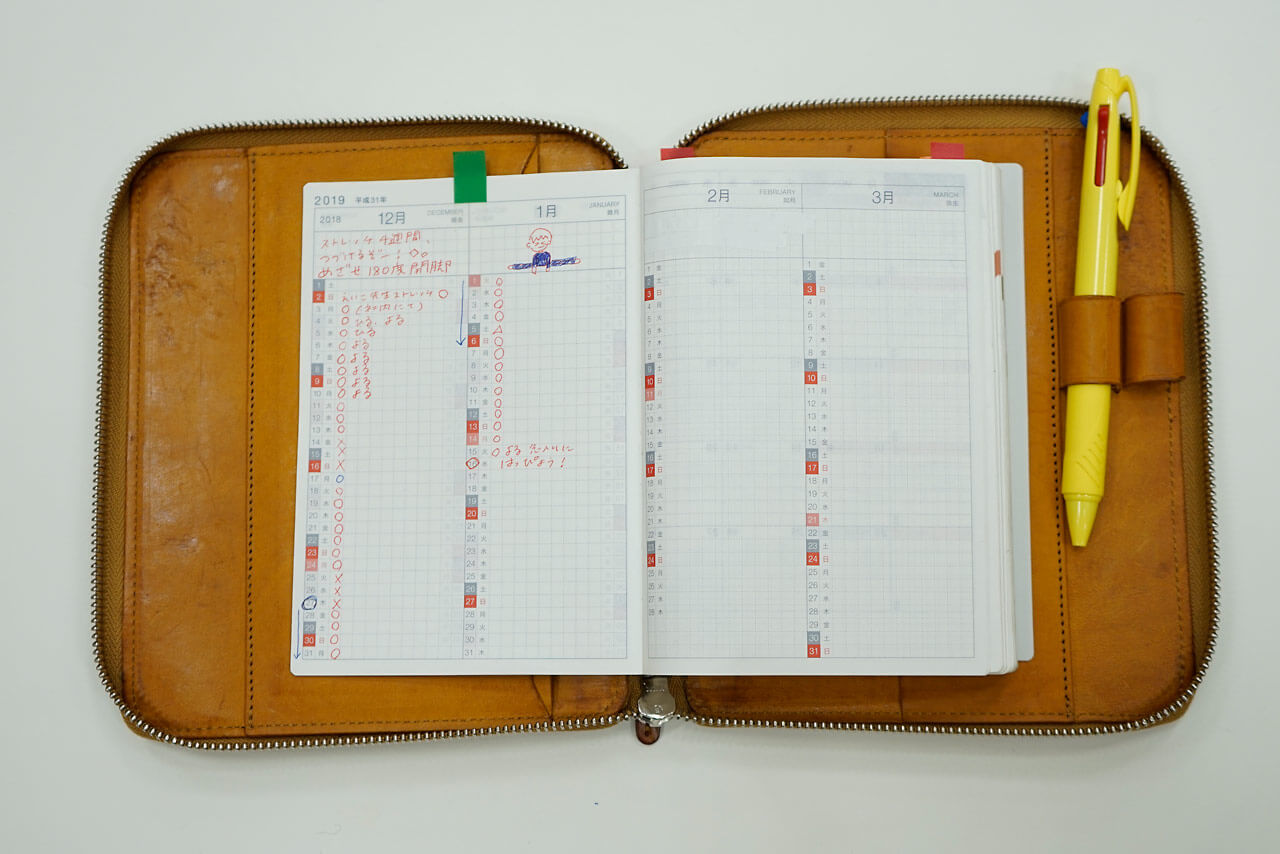 2019 平成31年
2018 12月 DECEMBER 師走
ストレッチ4週間、
つづけるぞー!◇。
めざせ180度開脚
1 土
2 日 えいこ先生ストレッチ ○
3 月 ○(社内にて)
4 火 ○ ひる、よる
5 水 ○ ひる
6 木 ○ よる
7 金 ○ よる
8 土 ○ よる
9 日 ○ よる
10 月 ○ よる
11 火 ○
12 水 ○
13 木 ○
14 金 ×
15 土 ×
16 日 ×
17 月 ○
18 火 ○
19 水 ○
20 木 ○
21 金 ○
22 土 ○
23 日 ○
24 月 ○
25 火 ×
26 水 ×
27 木 ×
28 金 ○
29 土 ○
30 日 ○
31 月 ○
1月 JANUARY 睦月
1 火 ○
2 水 ○
3 木 ○
4 金 ○
5 土 △
6 日 ○
7 月 ○
8 火 ○
9 水 ○
10 木 ○
11 金 ○
12 土 ○
13 日 ○
14 月 ○
15 火 ○ よる 先生に
16 水 はっぴょう!
17 木
18 金
19 土
20 日
21 月
22 火
23 水
24 木
25 金
26 土
27 日
28 月
29 火
30 水
31 木
2月 FEBRUARY 如月
1 金
2 土
3 日
4 月
5 火
6 水
7 木
8 金
9 土
10 日
11 月
12 火
13 水
14 木
15 金
16 土
17 日
18 月
19 火
20 水
21 木
22 金
23 土
24 日
25 月
26 火
27 水
28 木
3月 MARCH 弥生
1 金
2 土
3 日
4 月
5 火
6 水
7 木
8 金
9 土
10 日
11 月
12 火
13 水
14 木
15 金
16 土
17 日
18 月
19 火
20 水
21 木
22 金
23 土
24 日
25 月
26 火
27 水
28 木
29 金
30 土
31 日